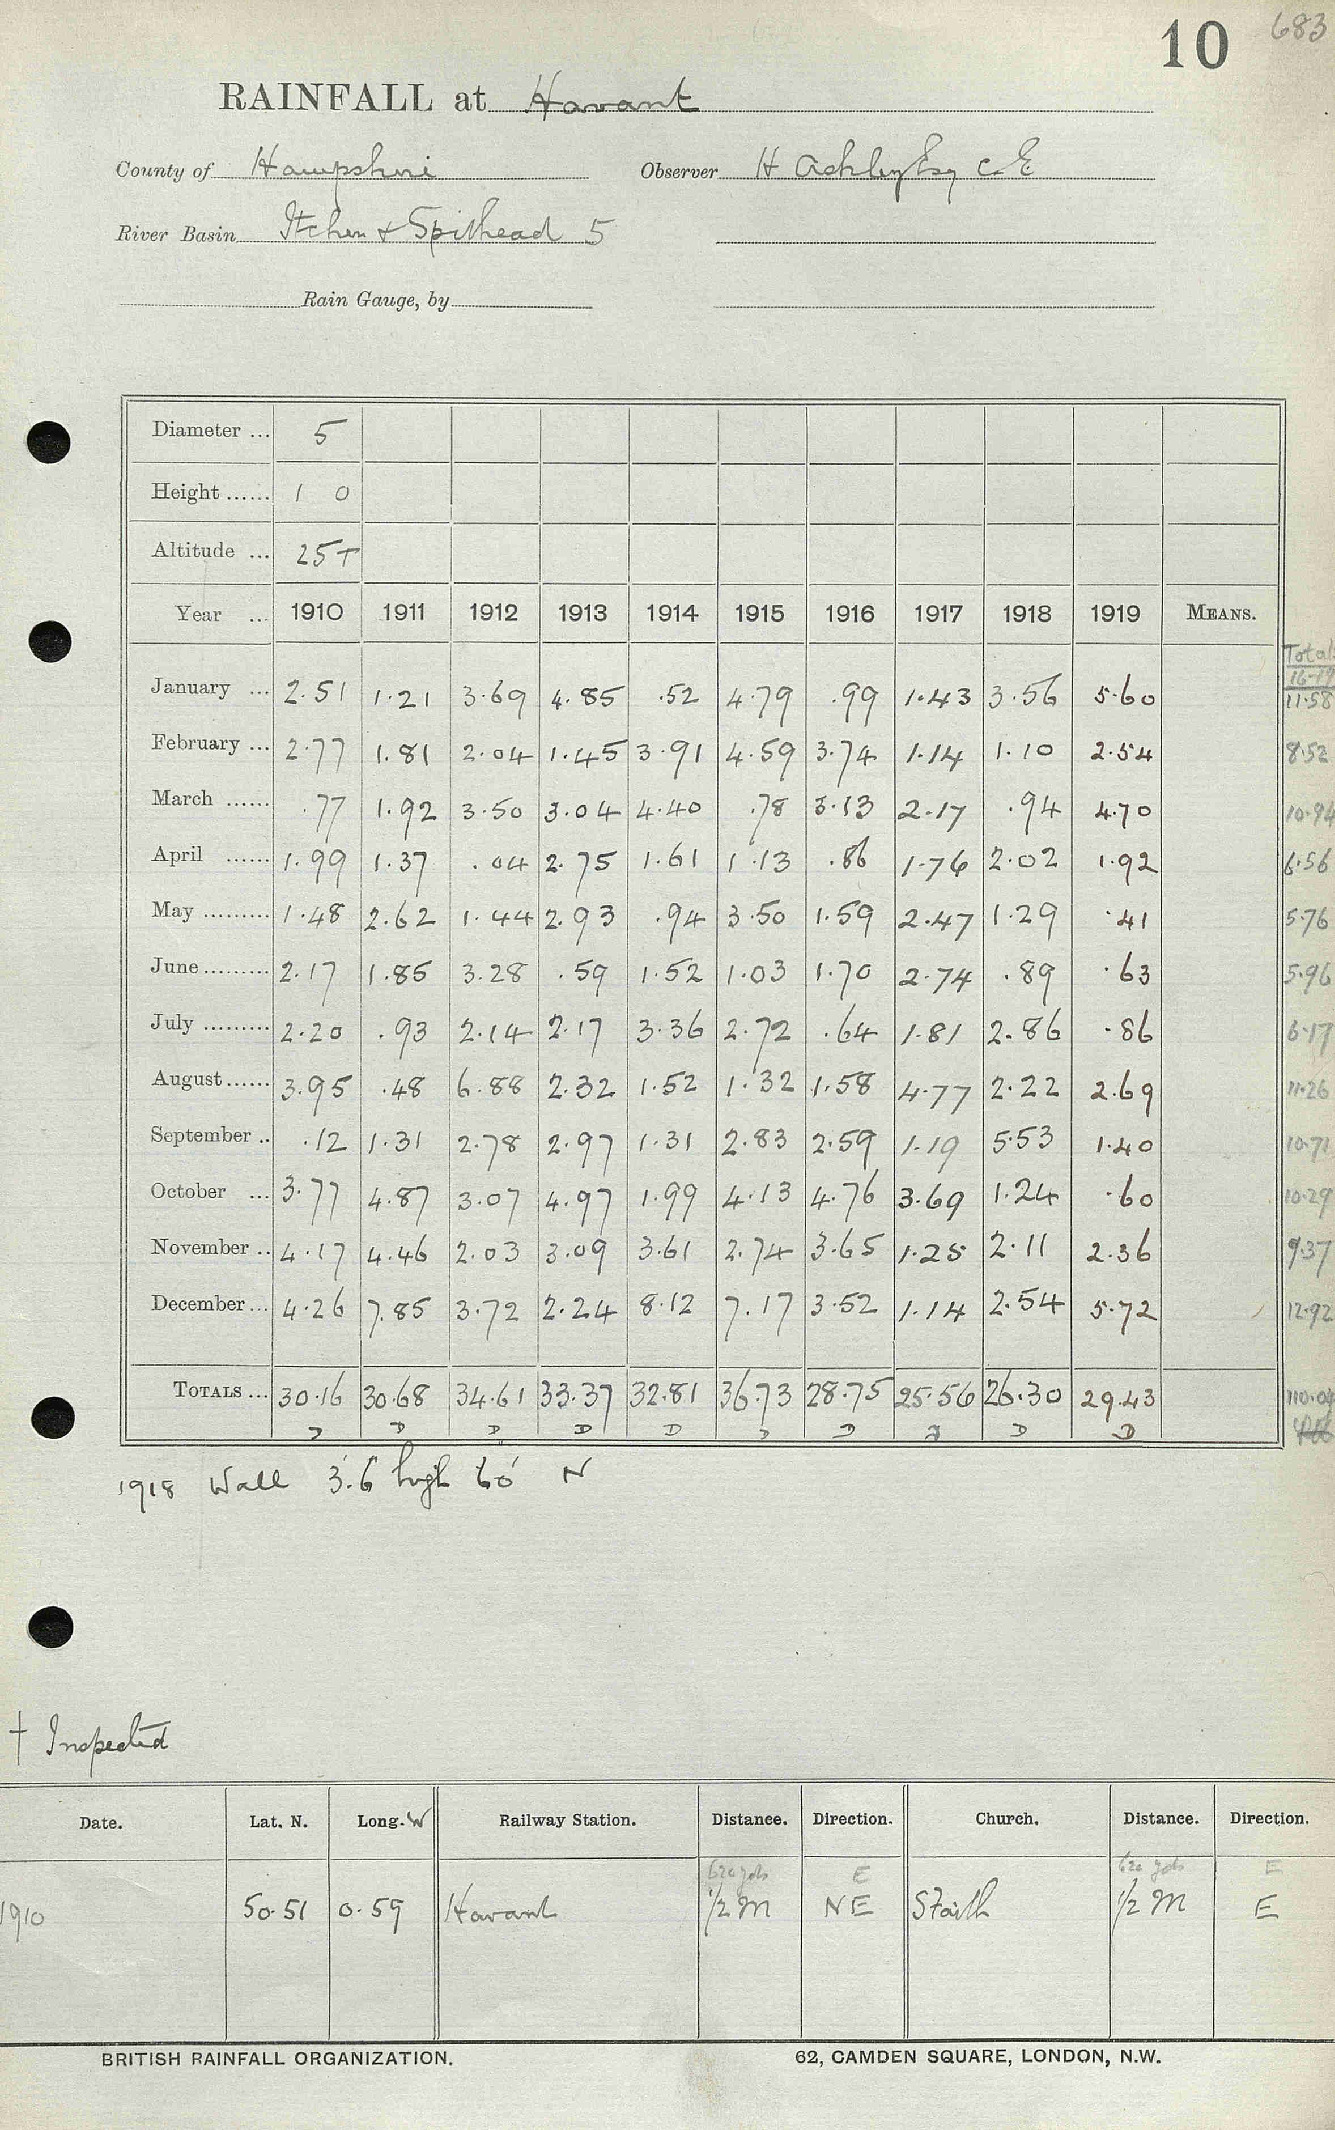 10 683
RAINFALL at Havant
County of Hampshire Observer H Ashley Esq C.E
River Basin Itchen & Spithead 5
Rain Gauge, by
Diameter ... 5
Height ...... 1 0
Altitude ... 25 †
Year ... 1910 1911 1912 1913 1914 1915 1916 1917 1918 1919 MEANS.
Total
16-19
January ... 2.51 1.21 3.69 4.85 .52 4.79 .99 1.43 3.56 5.60 11.58
February ... 2.77 1.81 2.04 1.45 3.91 4.59 3.74 1.14 1.10 2.54 8.52
March ...... .77 1.92 3.50 3.04 4.40 .78 3.13 2.17 .94 4.70 10.94
April ...... 1.99 1.37 .04 2.75 1.61 1.13 .86 1.76 2.02 1.92 6.56
May ......... 1.48 2.62 1.44 2.93 .94 3.50 1.59 2.47 1.29 .41 5.76
June ......... 2.17 1.85 3.28 .59 1.52 1.03 1.70 2.74 .89 .63 5.96
July ......... 2.20 .93 2.14 2.17 3.36 2.72 .64 1.81 2.86 .86 6.17
August ...... 3.95 .48 6.88 2.32 1.52 1.32 1.58 4.77 2.22 2.69 11.26
September .. .12 1.31 2.78 2.97 1.31 2.83 2.59 1.19 5.53 1.40 10.71
October ... 3.77 4.87 3.07 4.97 1.99 4.13 4.76 3.69 1.24 .60 10.29
November .. 4.17 4.46 2.03 3.09 3.61 2.74 3.65 1.25 2.11 2.36 9.37
December ... 4.26 7.85 3.72 2.24 8.12 7.17 3.52 1.14 2.54 5.72 12.92
TOTALS ... 30.16 30.68 34.61 33.37 32.81 36.73 28.75 25.56 26.30 29.43 110.04
D D D D D D D D D D
1918 Wall 3'.6 high 60' N
† Inspected
Date. Lat. N. Long. W Railway Station. Distance. Direction. Church. Distance. Direction.
620 yds E 620 yds E
1910 50.51 0.59 Havant 1/2 M NE St Faith 1/2 M E
BRITISH RAINFALL ORGANIZATION. 62, CAMDEN SQUARE, LONDON, N.W.